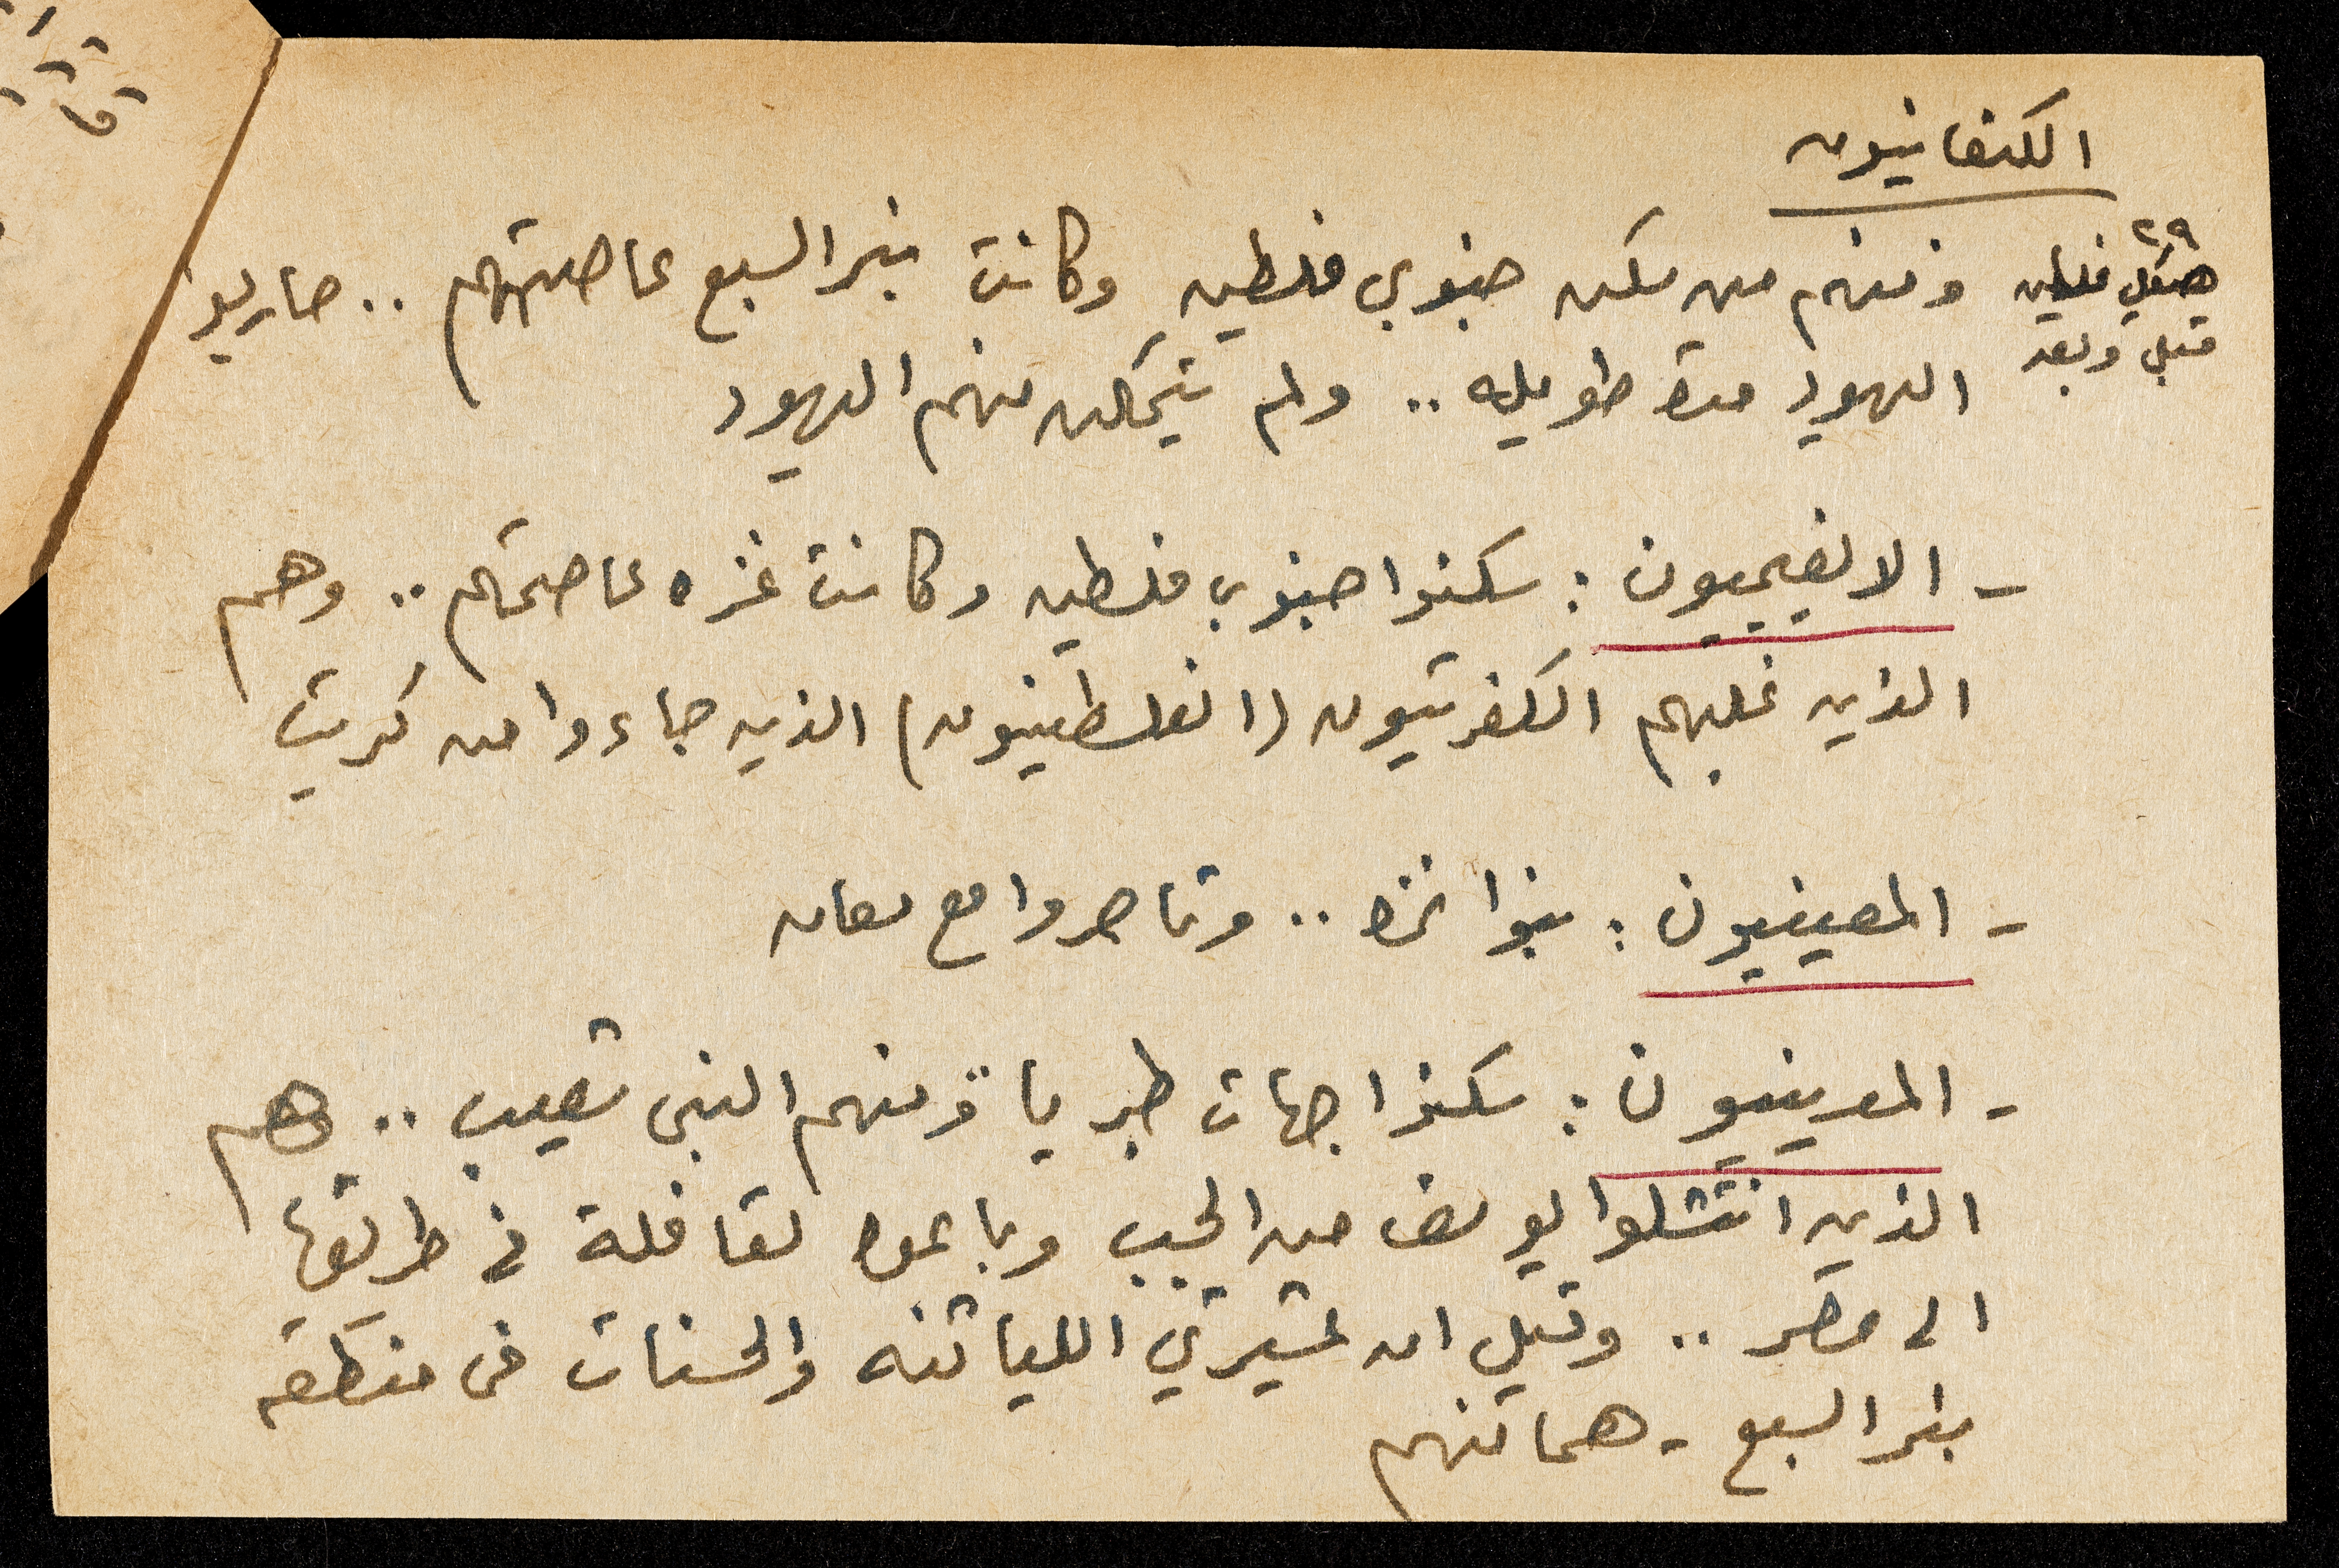 الكنعانيون
٢٩
هيكل فلسطين
قبل وبعد
ومنهم من سكن جنوبي فلسطين وكانت بئر السبع عاصمتهم .. حاربوا
اليهود مدة طويله .. ولم يتمكن منهم اليهود
- الانفيميون : سكنوا جنوبي فلسطين وكانت غزه عاصمتهم .. وهم
الذين غلبهم الكفرتيون (الفلسطينيون) الذين جاءوا من كريت
- المعينيون : بنوا غزه .. وتاجروا مع معان
- المدينيون : سكنوا جهات طبريا ومنهم النبي شعيب .. وهم
الذين انتشلوا يوسف من الجب وباعوه لقافلة في طريقها
الى مصر .. وقيل ان عشيرتي اللياثنه والحسنات في منطقة
بئر السبع - هما منهم